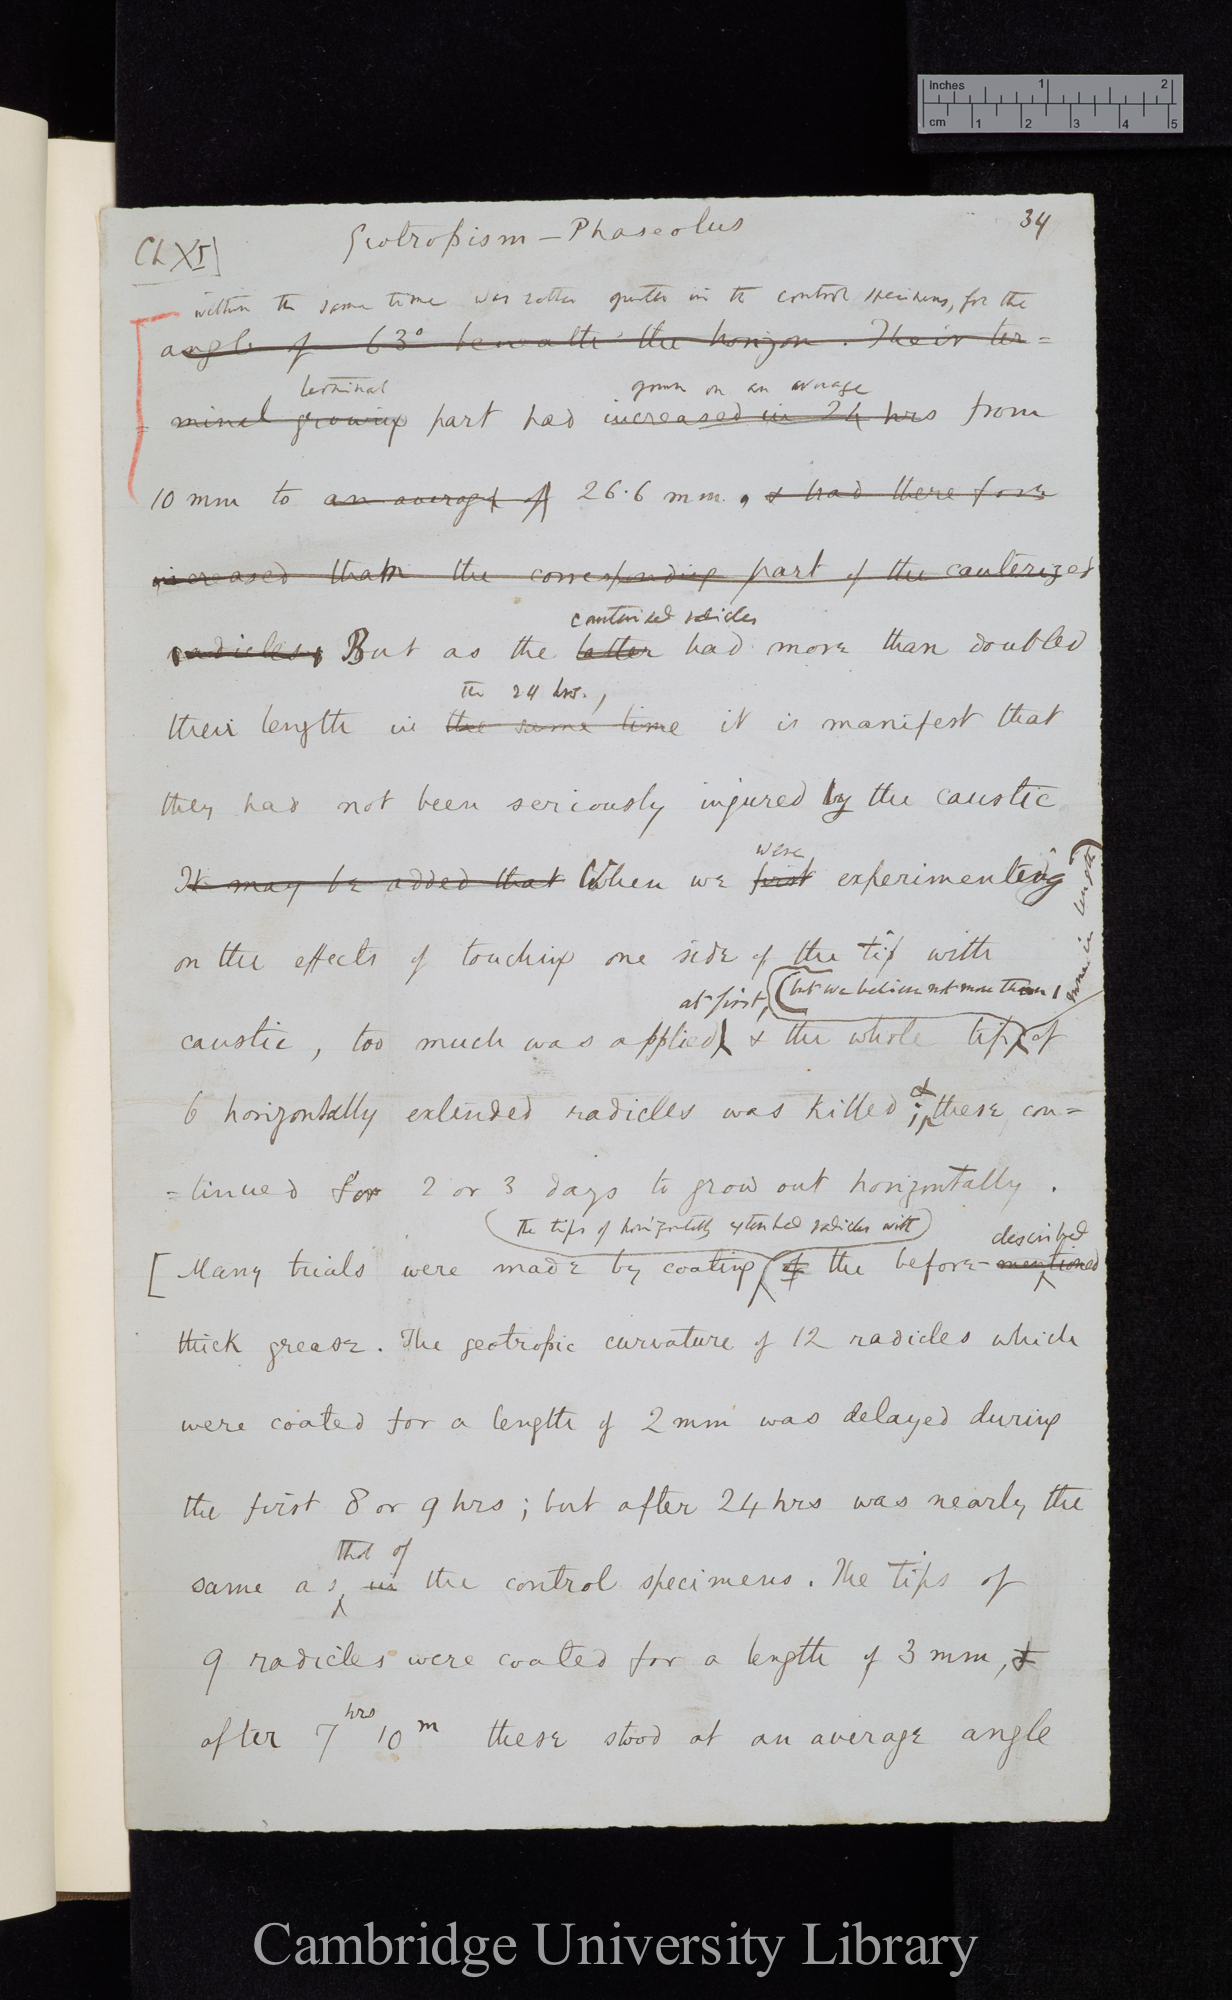 Inches 1 2
cm 1 2 3 4 5
34
Ch XI]
Geotropism — Phaseolus
within the same time was rather greater in the control specimens, for the
angle of 63° beneath the horizon. Their ter=
terminal grown on an average
minal growing part had increased in 24 hrs from
10 mm to an average of 26.6 mm, & had therefore
increased than the corresponding part of the cauterized
cauterised radicles
radicles. But as the latter had more than doubled
the 24 hrs.,
their length in the same time it is manifest that
they had not been seriously injured by the caustic
were
It may be added that When we first experimenting
on the effects of touching one side of the tip with
at first, (but we believe not more than 1 mm in length)
caustic, too much was applied & the whole tip of
&
6 horizontally extended radicles was killed; these con=
=tinued for 2 or 3 days to grow out horizontally.
(the tips of horizontally extended radicles with) described
[Many trials were made by coating of the before-mentioned
thick grease. The geotropic curvature of 12 radicles which
were coated for a length of 2 mm was delayed during
the first 8 or 9 hrs; but after 24 hrs was nearly the
that of
same as in the control specimens. The tips of
9 radicles were coated for a length of 3 mm, &
after 7 hrs 10 m these stood at an average angle
Cambridge University Library